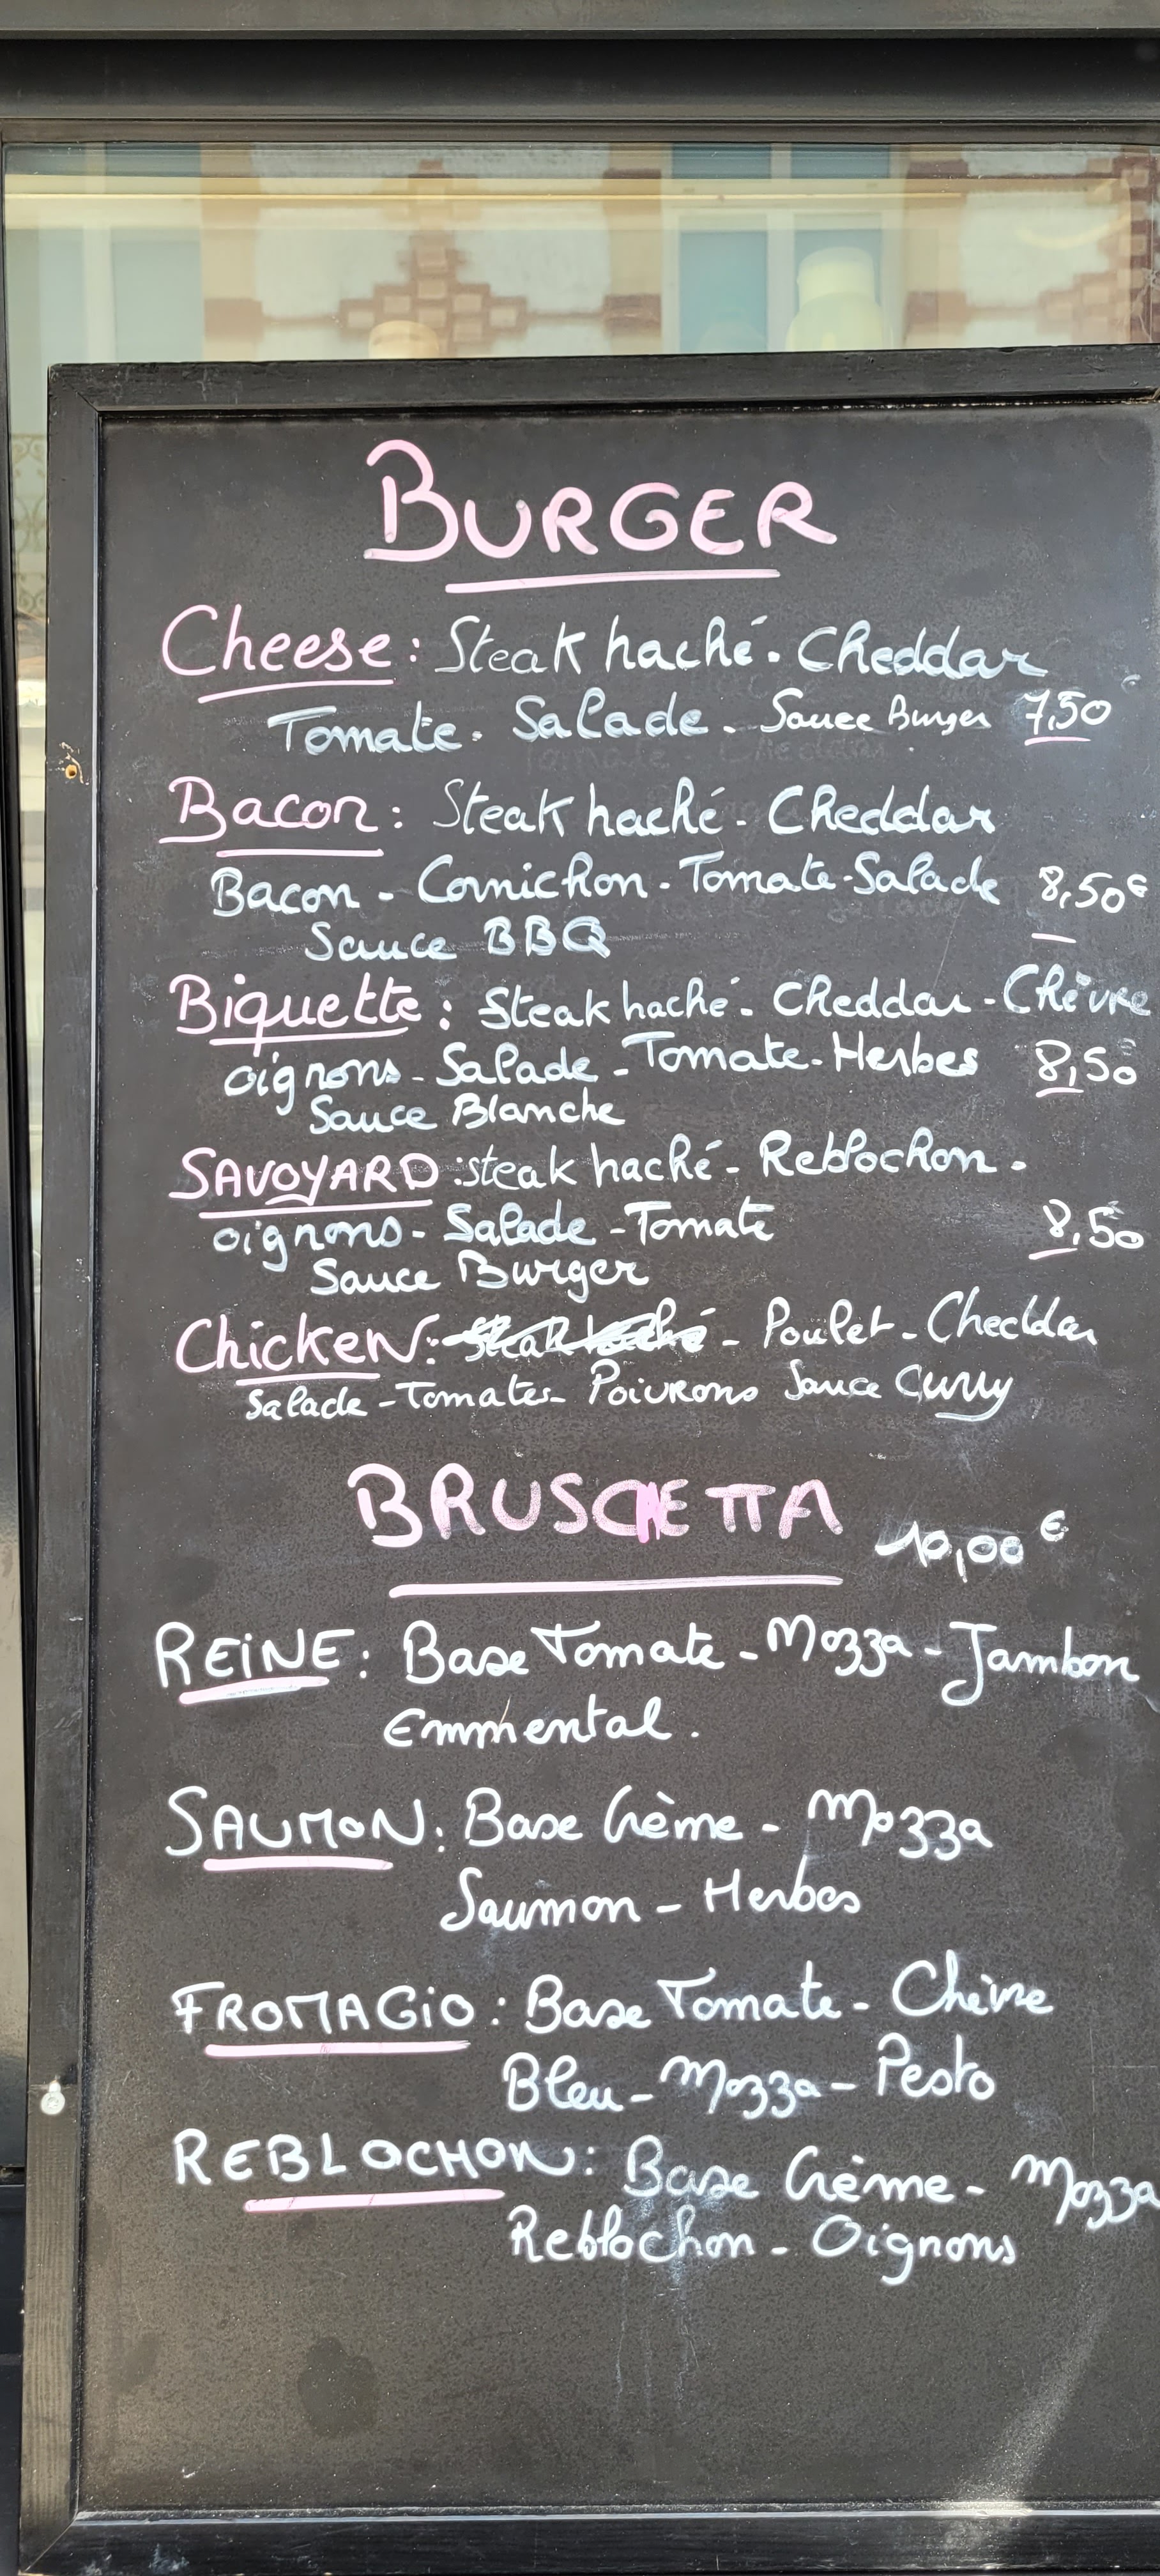 BURGER
Cheese : Steak haché. Cheddar
Tomate. Salade. Sauce Burger 7,50 €
Bacon : Steak haché - Cheddar
Bacon - Cornichon - Tomate - Salade 8,50€
Sauce BBQ
Biquette : Steak haché - Cheddar - Chèvre
oignons - Salade - Tomate - Herbes 8,50 €
Sauce Blanche
SAVOYARD : steak haché - Reblochon -
oignons - Salade - Tomate 8,50 €
Sauce Burger
Chicken : Steak haché - Poulet - Cheddar
Salade - Tomates - Poivrons Sauce Curry
BRUSCHETTA 10,00 €
REINE : Base Tomate - Mozza - Jambon
Emmental.
SAUMON : Base Crème - Mozza
Saumon - Herbes
FROMAGIO : Base Tomate - Chèvre
Bleu - Mozza - Pesto
REBLOCHON : Base Crème - Mozza
Reblochon - Oignons